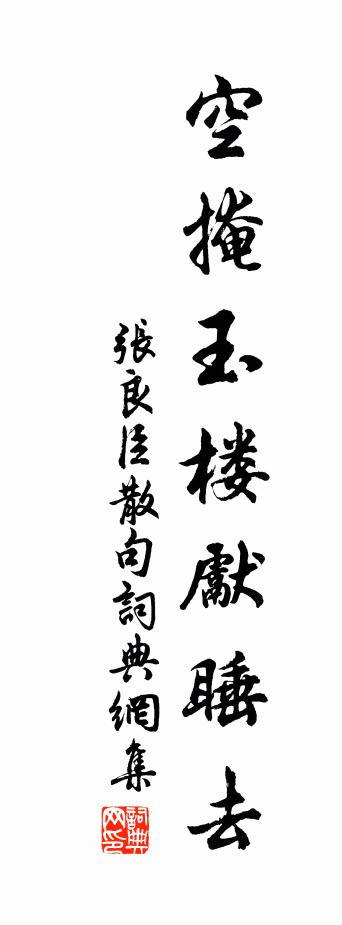 空掩玉楼獻睡去
張良臣散句詞典網集
詞典网印